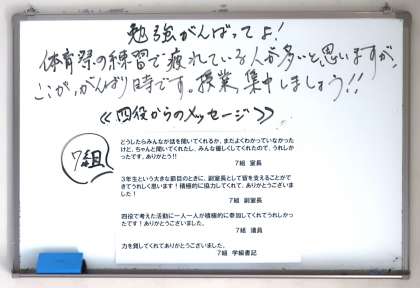 勉強がんばってよ!
体育祭の練習で疲れている人が多いと思いますが、
ここが、がんばり時です。授業、集中しましょう!!
≪四役からのメッセージ≫
7組
どうしたらみんなが話を聞いてくれるか、まだよくわかっていなかった
けど、ちゃんと聞いてくれたし、みんな優しくしてくれたので、うれしかっ
たです。ありがとう!!
7組 室長
3年生という大きな節目のときに、副室長として皆を支えることがで
きてうれしく思います!積極的に協力してくれて、ありがとうございまし
た!
7組 副室長
四役で考えた活動に一人一人が積極的に参加してくれてうれしかっ
たです!ありがとうございました。
7組 議員
力を貸してくれてありがとうございました。
7組 学級書記